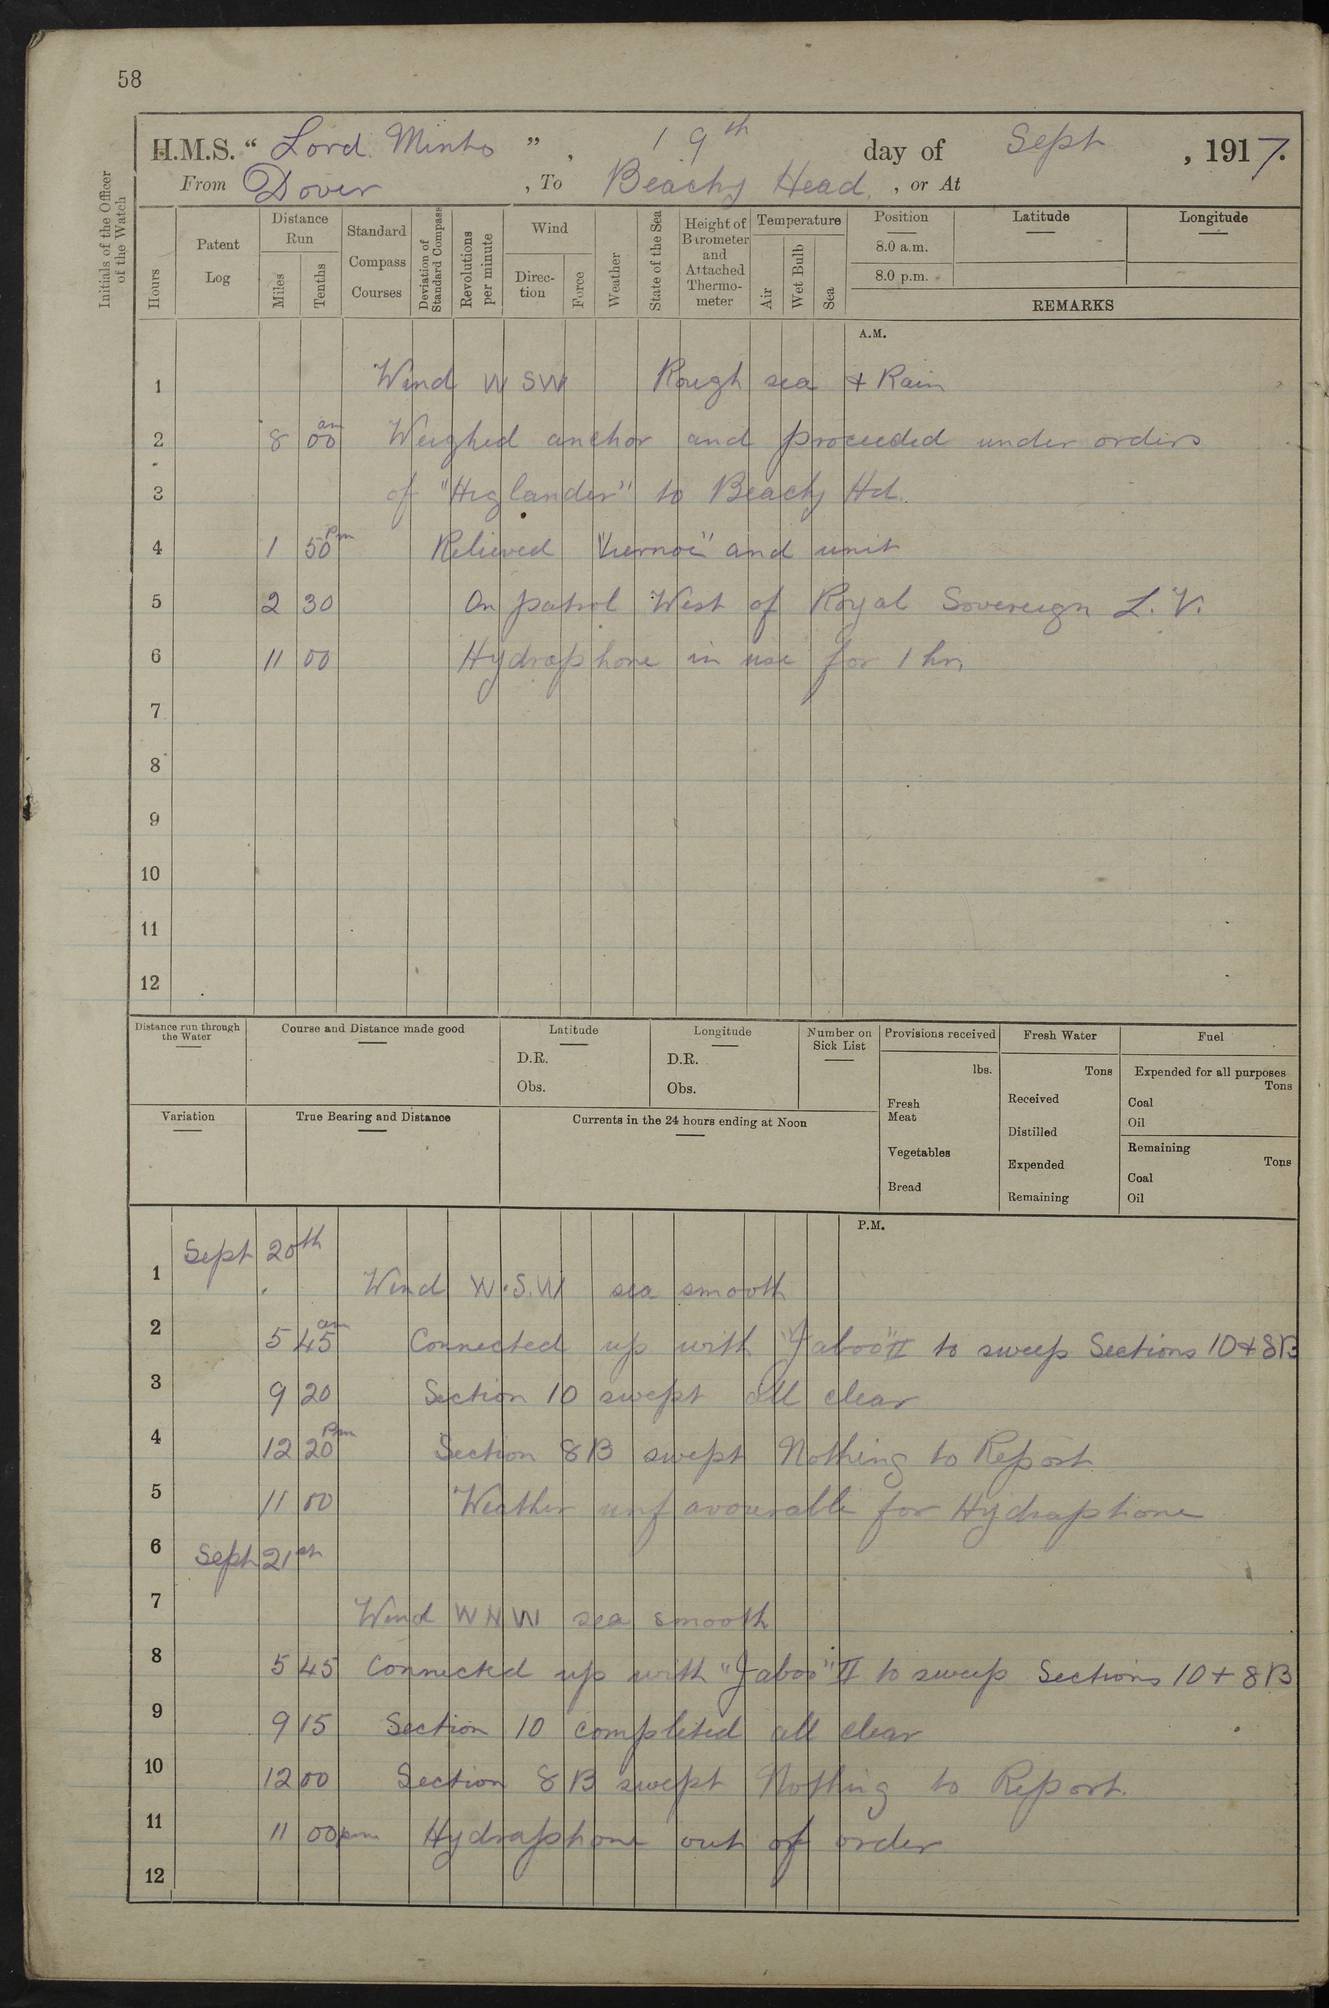 58
H.M.S. “ Lord Minto ” , 19th day of Sept , 1917.
From Dover , To Beachy Head , or At
Initials of the Officer of the Watch
Hours
Patent Log
Distance Run
Miles
Tenths
Standard Compass Courses
Deviation of Standard Compass
Revolutions per minute
Wind
Direction
Force
Weather
State of the Sea
Height of Barometer and Attached Thermometer
Temperature
Air
Wet Bulb
Sea
Position
8.0 a.m.
8.0 p.m.
Latitude
Longitude
REMARKS
A.M.
1 Wind W SW Rough sea + Rain
2 8 00 am Weighed anchor and proceeded under orders
3 of "Higlander" to Beachy Hd.
4 1 50 Pm Relieved and unit
5 2 30 On patrol West of Royal Sovereign L. V.
6 11 00 Hydraphone in use for 1 hr
7
8
9
10
11
12
Distance run through the Water
Course and Distance made good
Latitude
D.R.
Obs.
Longitude
D.R.
Obs.
Number on Sick List
Provisions received
lbs.
Fresh Meat
Vegetables
Bread
Fresh Water
Tons
Received
Distilled
Expended
Remaining
Fuel
Expended for all purposes
Tons
Coal
Oil
Remaining
Tons
Coal
Oil
Variation
True Bearing and Distance
Currents in the 24 hours ending at Noon
P.M.
Sept 20th
1 Wind W.S.W sea smooth
2 5 45 am Connected up with "Jaboo" II to sweep Sections 10 + 8B
3 9 20 Section 10 swept all clear
4 12 20 Pm Section 8B swept Nothing to Report
5 11 00 Weather unfavourable for Hydraphone
6 Sept 21st
7 Wind WNW sea smooth
8 5 45 Connected up with "Jaboo" II to sweep Sections 10 + 8B
9 9 15 Section 10 completed all clear
10 12 00 Section 8B swept Nothing to Report.
11 11 00 pm Hydraphone out of order
12